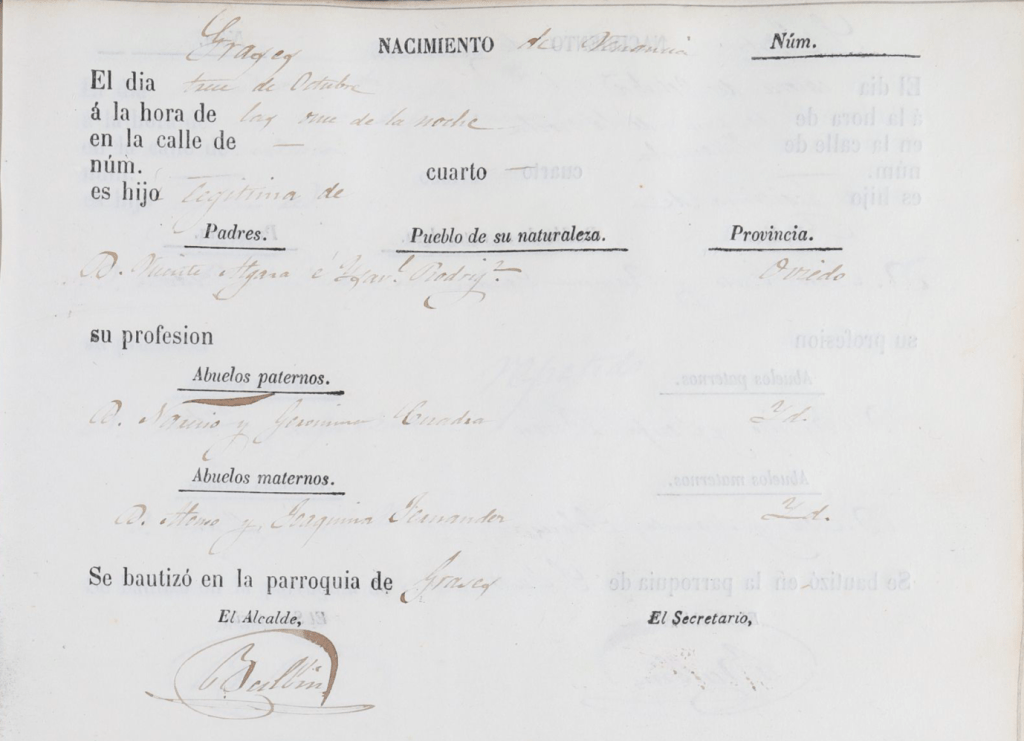 Grases
NACIMIENTO de Venancia Núm.
El dia trece de Octubre
á la hora de las once de la noche
en la calle de —
núm. cuarto —
es hijo Legitima de
Padres. Pueblo de su naturaleza. Provincia.
D. Vicente é Rodrigz. Oviedo
su profesion
Abuelos paternos.
D. y Geronima Cuadra Yd.
Abuelos maternos.
D. Alonso y Joaquina Fernandez Yd.
Se bautizó en la parroquia de Grases
El Alcalde, El Secretario,
Ballin